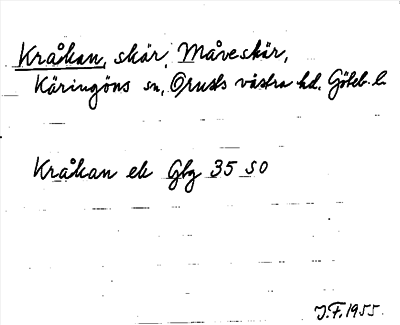 Kråkan, skär, Måveskär,
Käringöns sn, Orusts västra hd. Göteb. l.
Kråkan ek Gbg 35 SO
J.F. 1955.